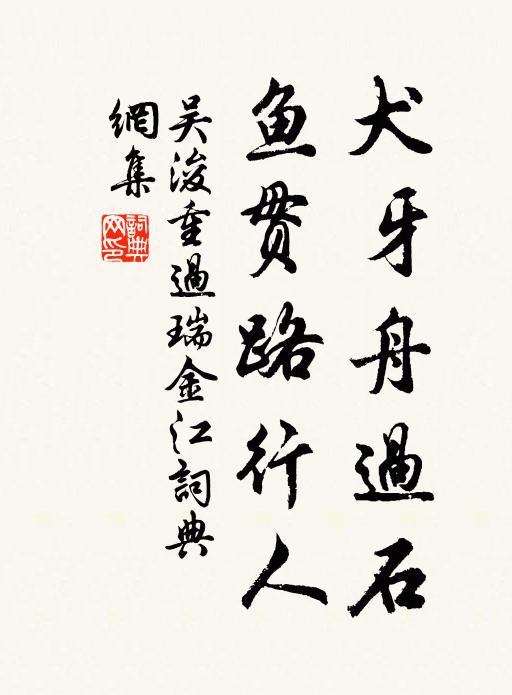 犬牙舟過石
鱼贯路行人
吴浚重過瑞金江詞典
網集
詞典
网印